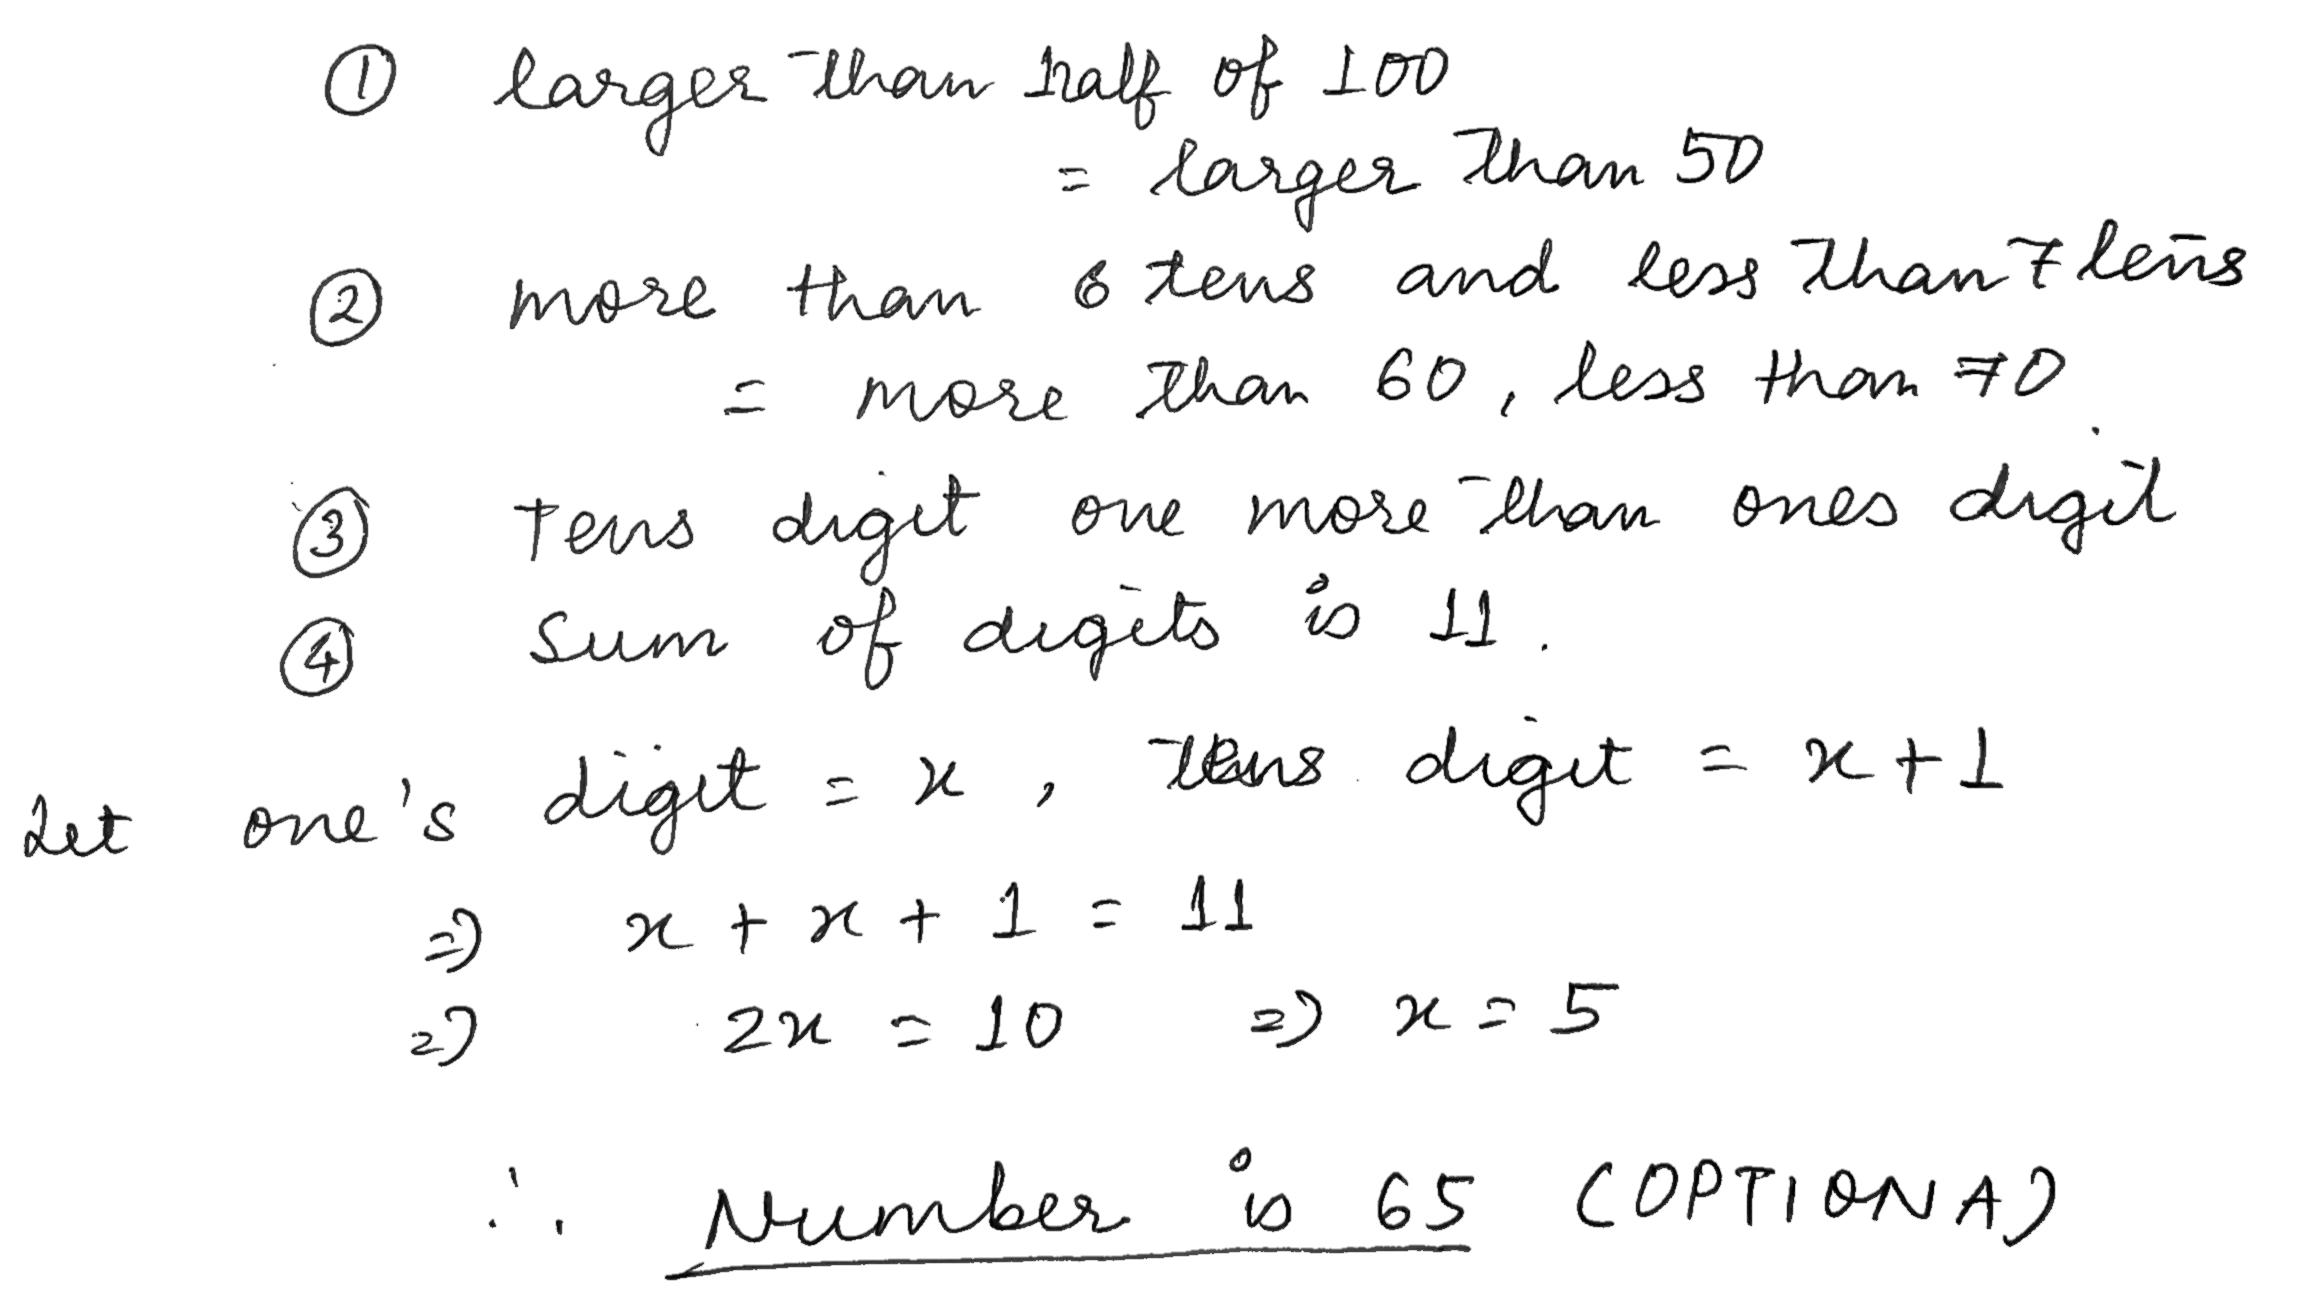 ① larger than half of 100
= larger than 50
② more than 6 tens and less than 7 tens
= more than 60, less than 70
③ Tens digit one more than ones digit
④ Sum of digits is 11.
Let one's digit = x, tens digit = x + 1
⇒ x + x + 1 = 11
⇒ 2x = 10 ⇒ x = 5
∴ Number is 65 (OPTION A)